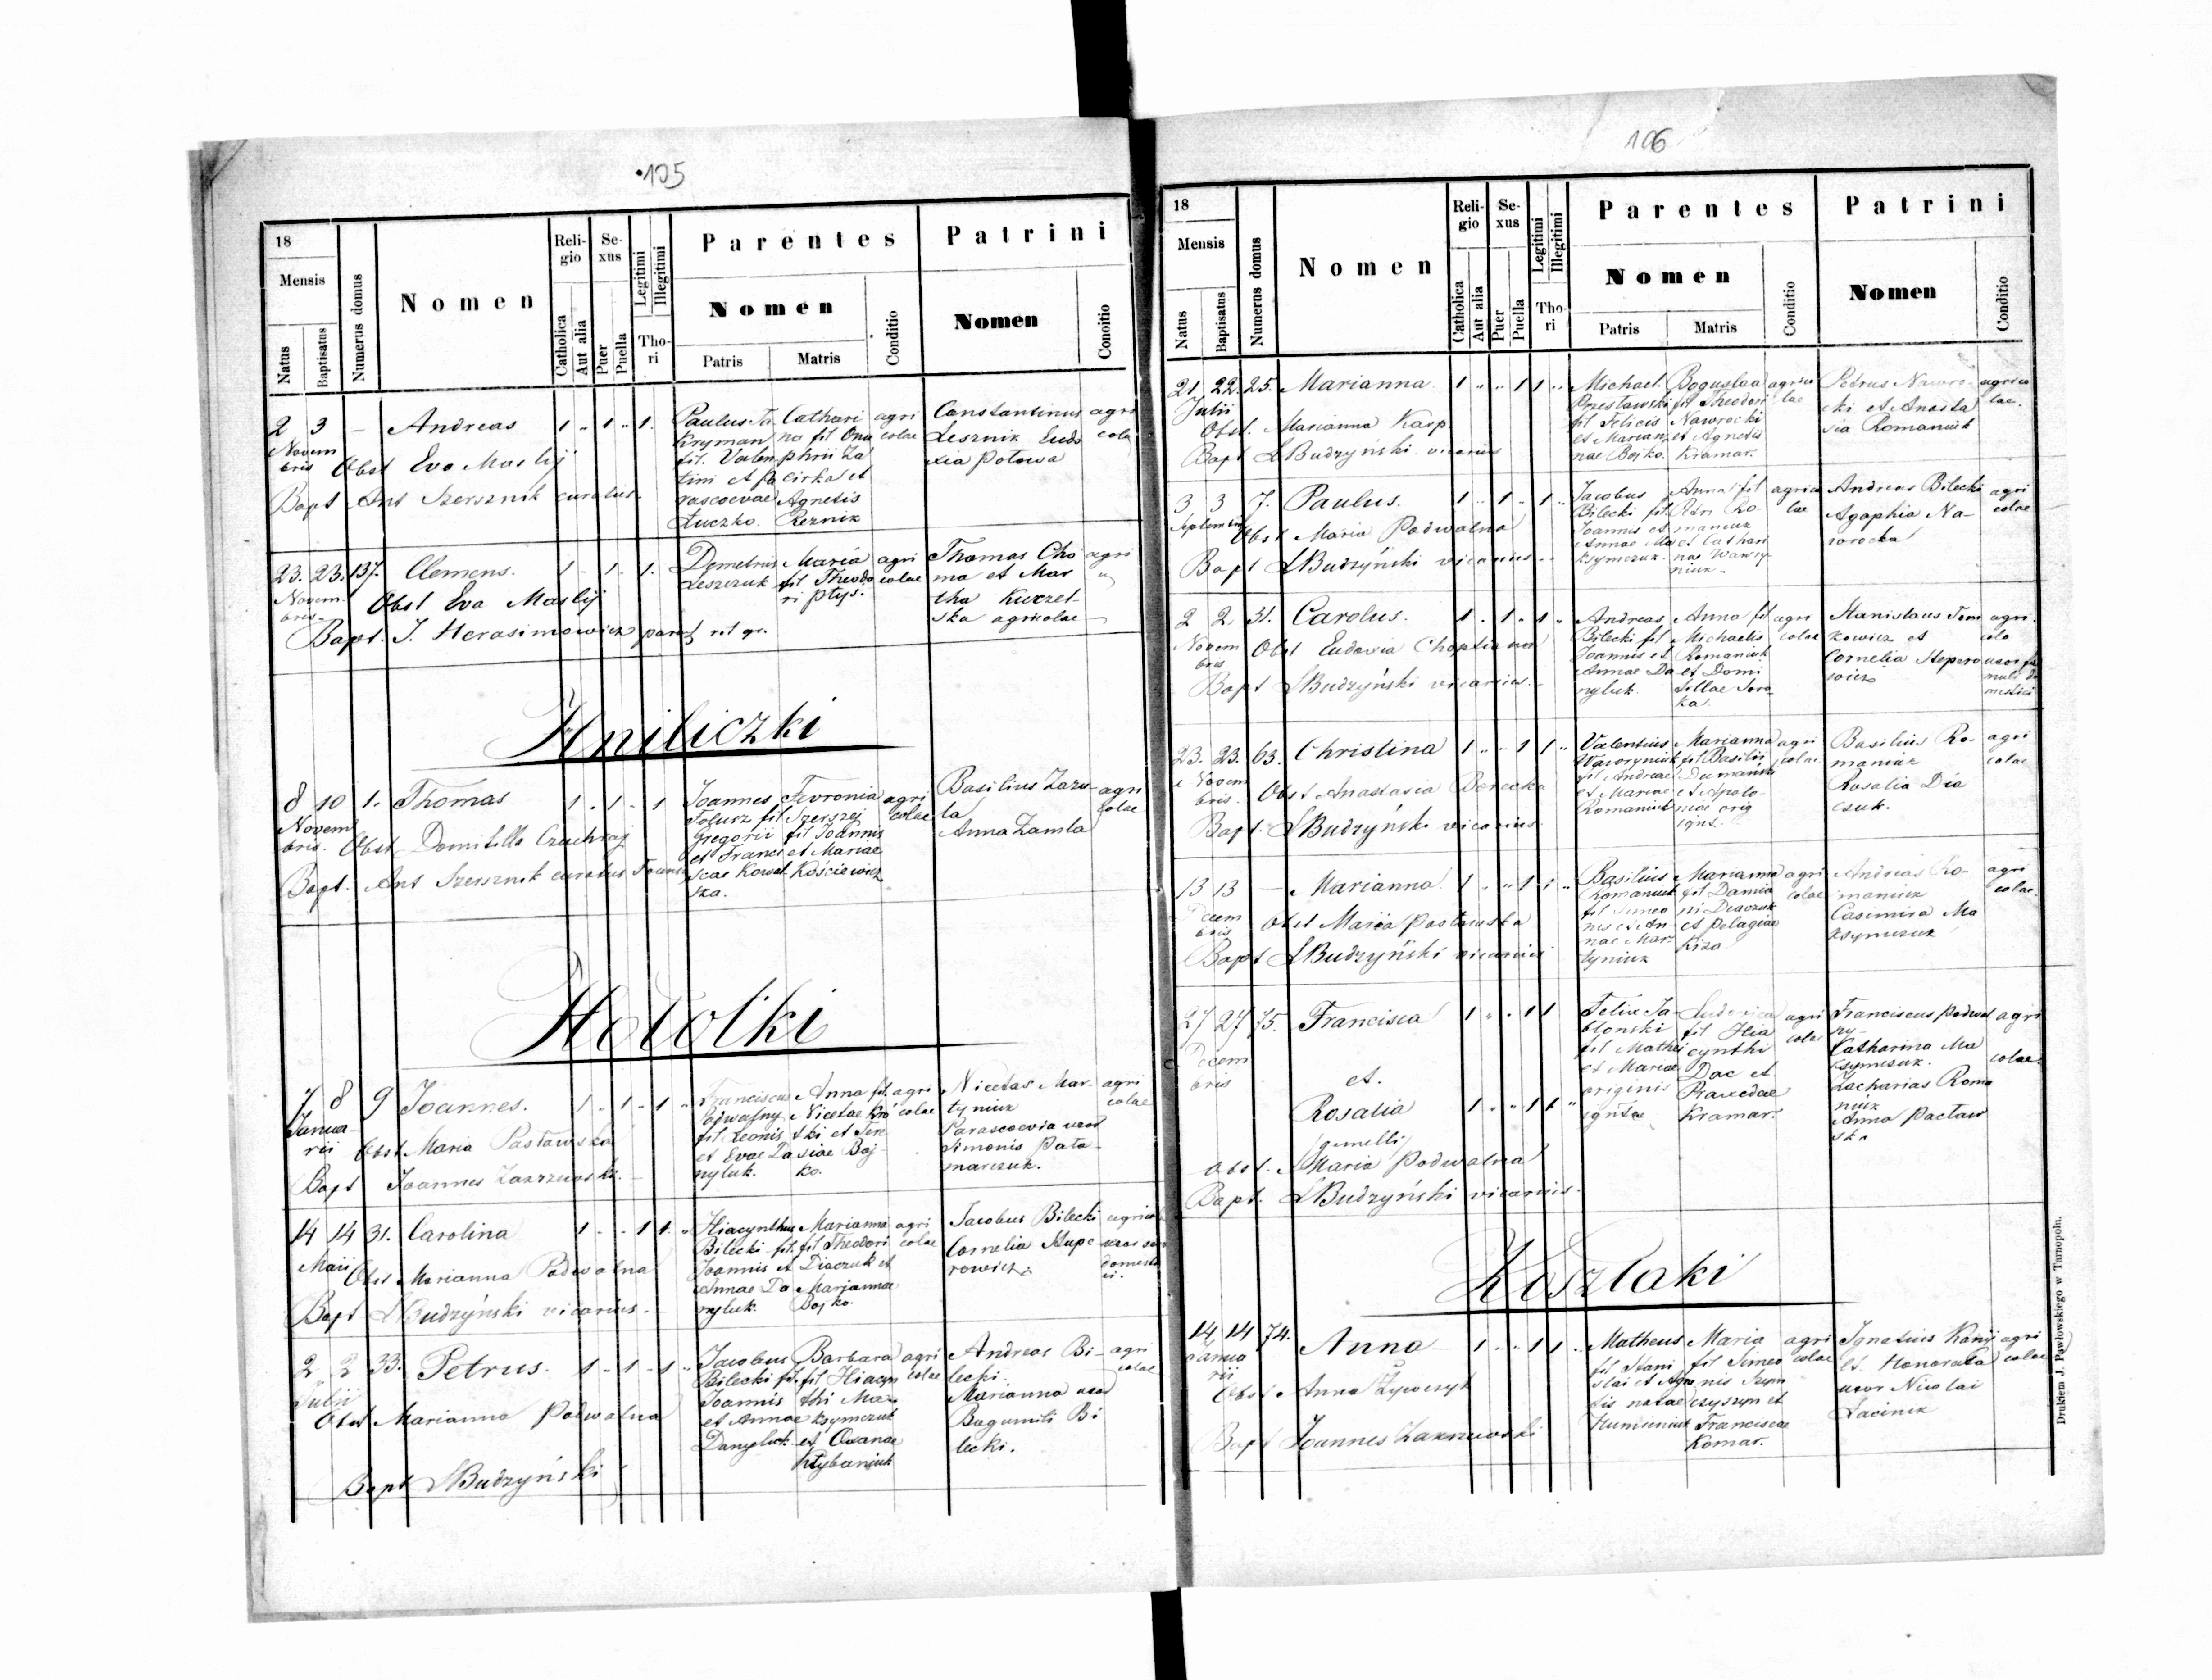 105
18
Mensis
Natus
Baptisatus
Numerus domus
Nomen
Religio
Catholica
Aut alia
Sexus
Puer
Puella
Legitimi
Illegitimi
Thori
Parentes
Nomen
Patris
Matris
Conditio
Patrini
Nomen
Conoitio
2 3 — Andreas 1 „ 1 „ 1.
Novem
bris
Obst Eva Maslij
Bapt Ant Szersznik curatus
Paulus Ta
Kryman
fil. Valen
tini et Pa
rascoevae
Łuczko.
Cathari
na fil Onu
phrii Za
cirka et
Agnetis
Reznik
agri
colae
Constantinus
Lesznik Eudo
xia Potowa
agri
colae
23. 23. 137. Clemens. 1 1 1.
Novem
bris
Obst Eva Maslij
Bapt. J. Herasimowicz paroch rit gr.
Demetrius
Leszczuk
Maria
fil Theodo
ri Ptys.
agri
colae
Thomas Cho
ma et Mar
tha Kurzel
ska agricolae
agri
Hniliczki
8 10 1. Thomas 1 „ 1 „ 1
Novem
bris.
Obst Domitilla Czachraj
Bapt. Ant Szersznik curatus
Joannes
Folusz fil
Gregorii
et Francis
cae Kowal
ska.
Fevronia
Szerszej
fil Joannis
et Mariae
Kościewicz
agri
colae
Basilius Zazu
la
Anna Zamla
agri
colae
Hołotki
7 8 9 Joannes. 1 „ 1 „ 1 „
Janua
rii
Obst Maria Pasławska
Bapt Joannes Zakrzewski
Franciscus
Podwalny
fil Leonis
et Evae Da
nyluk.
Anna fil.
Nicetae Kro
tki et Tere
siae Boj
ko.
agri
colae
Nicetas Mar
tyniuk
Parascoevia uxor
Simonis Pata
marczuk.
agri
colae
14 14 31. Carolina 1 „ „ 1 1. „
Maii
Obst Marianna Podwalna
Bapt LBudzyński vicarius.
Hiacynthus
Bilecki fil.
Joannis et
Annae Da
nyluk.
Marianna
fil Theodori
Diaczuk et
Marjannae
Bojko.
agri
colae
Jacobus Bilecki
Cornelia Stupe
rowicz.
agricola
2 2 33. Petrus. 1 „ 1 „ 1 „
Julii
Obst Marianna Podwalna
Bapt LBudzyński
Jacobus
Bilecki fil.
Joannis
et Annae
Danyluk
Barbara
fil Hiacyn
thi Ma
ksymczuk
et Oxanae
Hrybaniuk
agri
colae
Andreas Bi
lecki.
Marianna uxor
Bogumili Bi
lecki.
agri
colae
106
18
Mensis
Natus
Baptisatus
Numerus domus
Nomen
Religio
Catholica
Aut alia
Sexus
Puer
Puella
Legitimi
Illegitimi
Thori
Parentes
Nomen
Patris
Matris
Conditio
Patrini
Nomen
Conditio
21 22. 25. Marianna 1 „ „ 1 1 „
Julii
Obst. Marianna Karp
Bapt LBudzyński vicarius
Michael
Przestawski
fil Felicis
et Marian
nae Bojko.
Boguslaa
fil Theodori
Naworocki
et Agnetis
Kramar.
agrico
lae
Petrus Naworo
cki et Anasta
sia Romaniuk
agrico
lae.
3 3 7. Paulus. 1 „ 1 „ 1 „
Septembris
Obst Maria Podwalna
Bapt LBudzyński vicarius
Jacobus
Bilecki fil.
Joannis et
Annae Ma
ksymczuk.
Anna fil
Petri Ro
maniuk
et Cathari
nae Wawry
niuk
agrico
lae
Andreas Bilecki
Agaphia Na
worocka
agri
colae
2 2 31. Carolus. 1 „ 1 „ 1 „
Novem
bris
Obst Eudoxia Choptiana
Bapt LBudzyński vicarius
Andreas
Bilecki fil
Joannis et
Annae Da
nyluk.
Anna fil
Michaelis
Romaniuk
et Domi
tillae Soro
ka.
agri
colae
Stanislaus Tom
kowicz et
Cornelia Stepero
wicz
agri
cola
uxor fa
muli do
mestici
23. 23. 63. Christina 1 „ „ 1 1 „
Novem
bris.
Obst Anastasia Berecka
Bapt. LBudzyński vicarius
Valentius
Waworyniuk
fil Andreae
et Mariae
Romaniuk
Marianna
fil Basilii
Dumański
et Apolo
niae orig
ignt.
agri
colae
Basilius Ro
maniuk
Rosalia Dia
czuk.
agri
colae
13 13 — Marianna 1 „ „ 1 1 „
Decem
bris
Obst Maria Pasławska
Bapt LBudzyński vicarius
Basilius
Romaniuk
fil Simeo
nis et An
nae Mar
tyniuk
Marianna
fil Damia
ni Diaczuk
et Pelagiae
Kiza
agri
colae
Andreas Ro
maniuk
Casimira Ma
ksymczuk
agri
colae.
27 27 75. Francisca 1 „ „ 1 1
Decem
bris
et.
Rosalia 1 „ „ 1 1 „
gemelli
Obst. Maria Podwalna
Bapt. LBudzyński vicarius.
Felix Ja
blonski
fil Mathei
et Mariae
originis
igntae
Ludovica
fil Hia
cynthi
Dac et
Praxedae
Kramar.
agri
colae
Franciscus Podwal
ny
Catharina Ma
ksymczuk.
Zacharias Roma
niuk
Anna Pacław
ska
agri
colae
Koszlaki
14 14 74. Anna 1 „ „ 1 1 „
Janua
rii
Obst Anna Zywczyk
Bapt Joannes Zakrzewski
Matheus
fil Stani
slai et Agne
tis natae
Humieniuk
Maria
fil Simeo
nis Szym
czyszyn et
Franciscae
Komar.
agri
colae
Ignatius Kanij
et Honorata
uxor Nicolai
Lacinik
agri
colae
Drukiem J. Pawłowskiego w Tarnopolu.